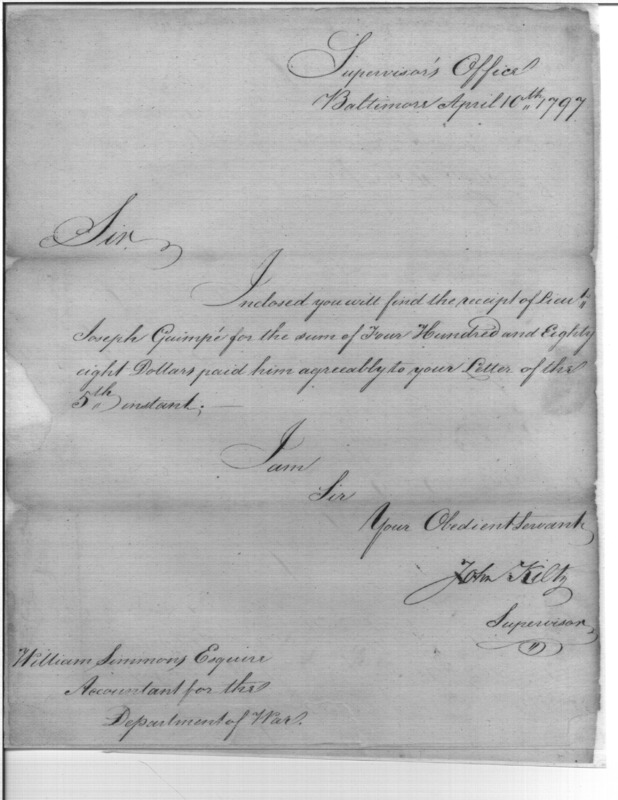 Supervisor's Office
Baltimore April 10th 1797
Sir.
Inclosed you will find the receipt of Lieut.
Joseph Guimpé for the sum of Four Hundred and Eighty
eight Dollars paid him agreeably to your Letter of the
5th instant; —
I am
Sir
Your Obedient Servant,
John Kilty
Supervisor
William Simmons Esquire
Accountant for the
Department of War.